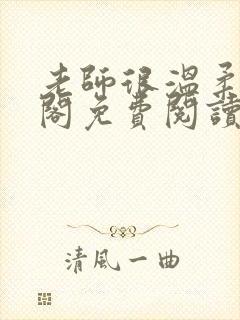 老師很溫柔
閣免費閱讀
清風一曲